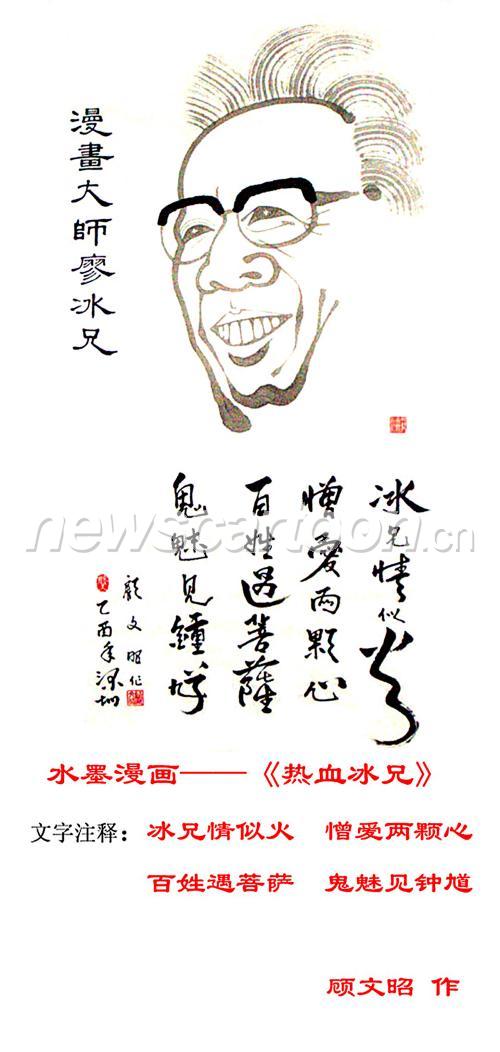 漫畫大師廖冰兄
冰兄情似火
憎愛两颗心
百姓遇菩薩
鬼魅見鍾馗
顧文昭作
乙酉年深圳
newscartoon.cn
水墨漫画——《热血冰兄》
文字注释：冰兄情似火 憎爱两颗心
百姓遇菩萨 鬼魅见钟馗
顾文昭 作